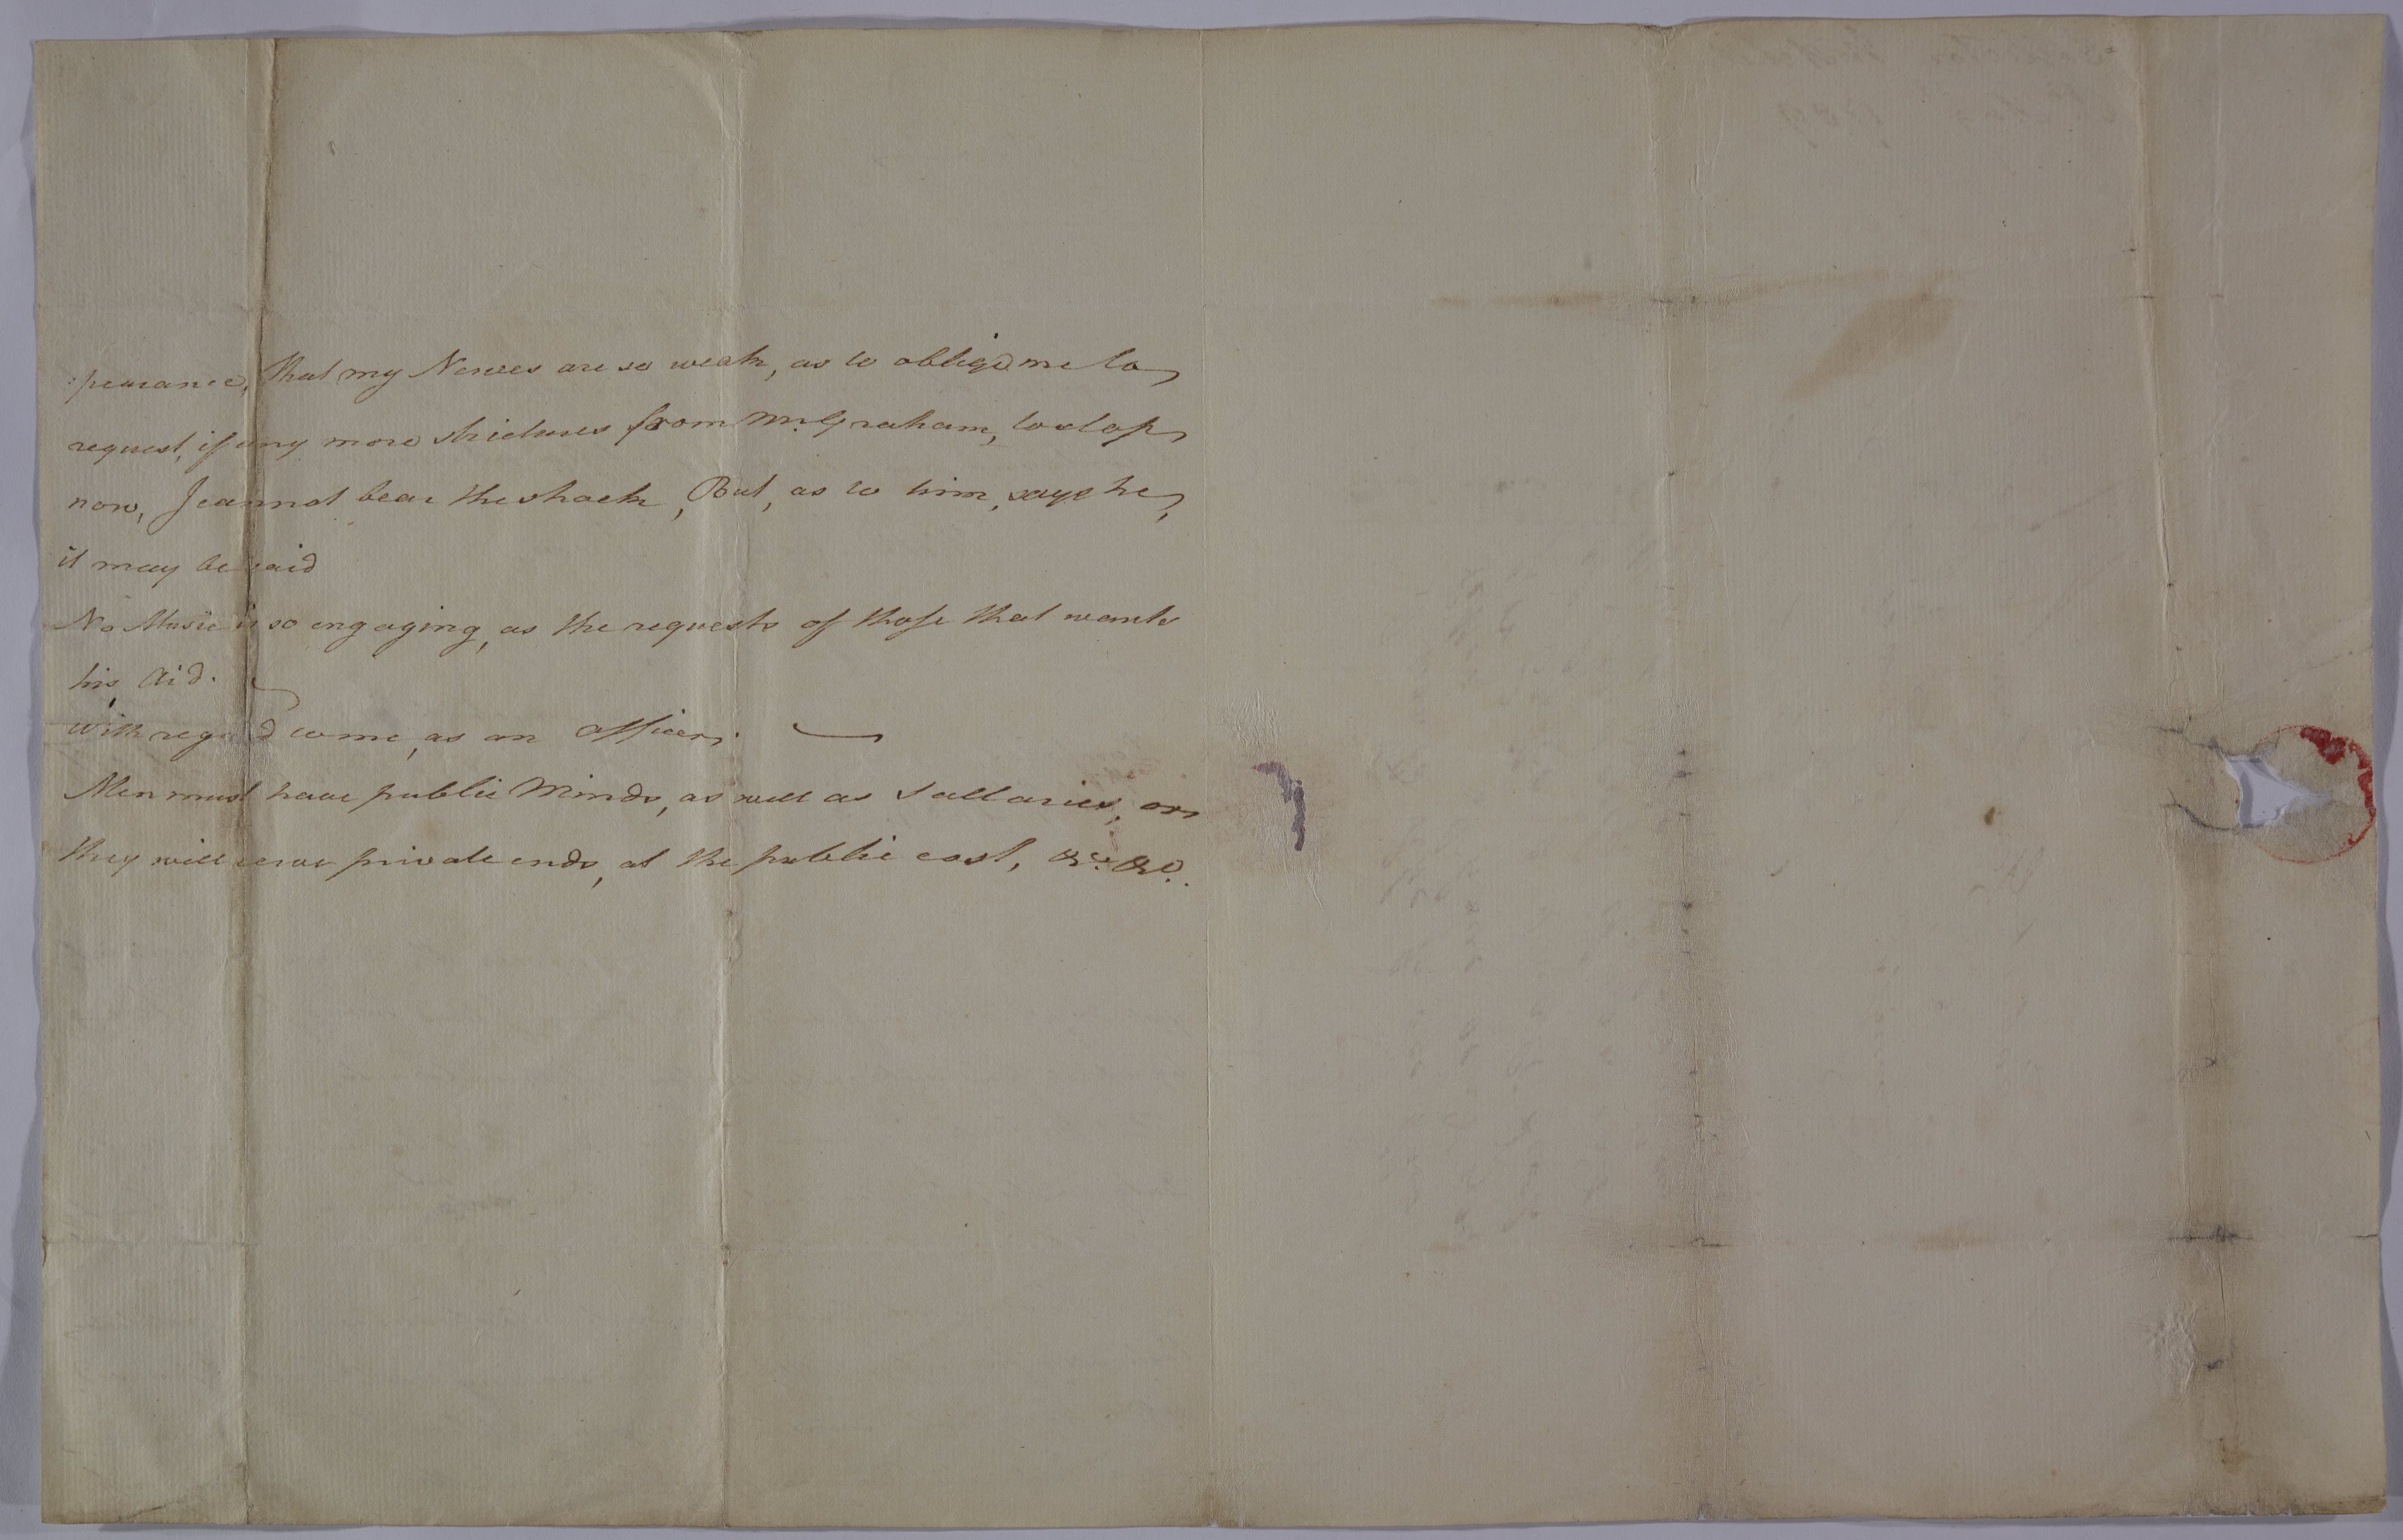 :pearance, that my Nerves are so weak, as to oblige me to
request, if any more strictures from Mr. Graham, to stop
now, I cannot bear the shock, But, as to him, says he,
it may be said
No Music is so engaging, as the requests of those that wants
his Aid.
with regard to me, as an officer.
Men must have public Minds, as well as Sallaries, or
they will serve private ends, at the public cost, &c. &c.